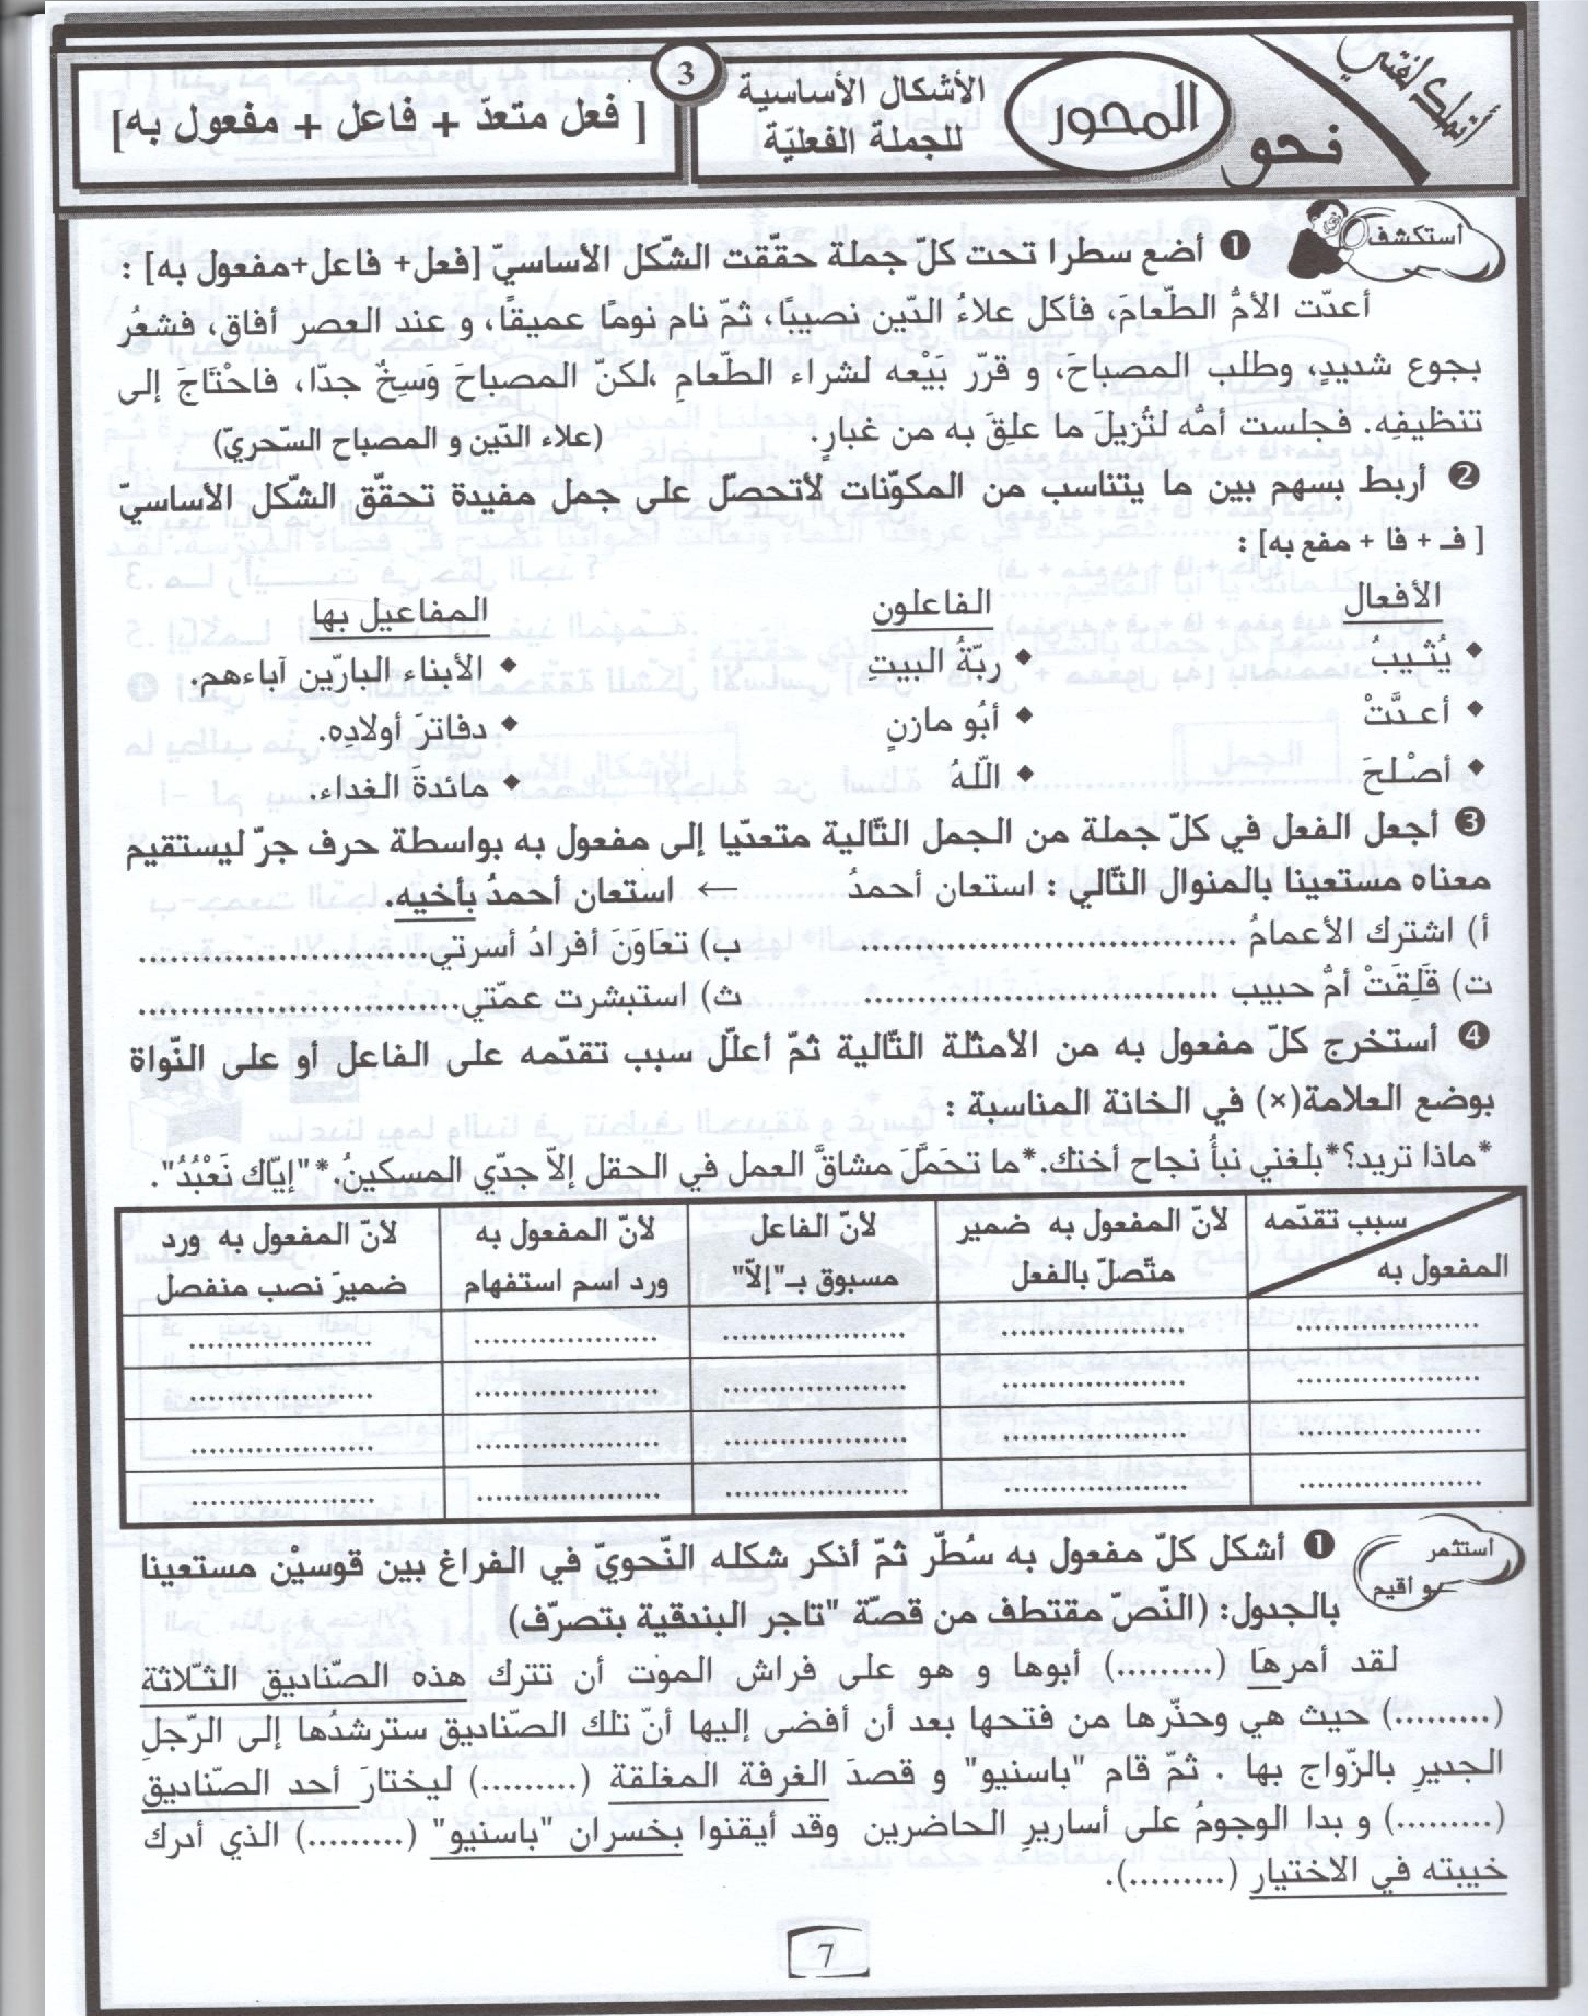 أتملك لغتي
نحو
المحور
الأشكال الأساسية
للجملة الفعليّة
3
[ فعل متعدّ + فاعل + مفعول به]
أستكشف
❶ أضع سطرا تحت كلّ جملة حقّقت الشّكل الأساسيّ [فعل+ فاعل+مفعول به] :
أعدّت الأمُّ الطّعامَ، فأكل علاءُ الدّين نصيبًا، ثمّ نام نومًا عميقًا، و عند العصر أفاق، فشعُر
بجوع شديدٍ، وطلب المصباحَ، و قرّر بَيْعه لشراء الطّعامِ ،لكنّ المصباحَ وَسِخٌ جدّا، فاحْتَاجَ إلى
تنظيفِه. فجلست أمّه لتُزيلَ ما علِقَ به من غبارٍ. (علاء الدّين و المصباح السّحريّ)
❷ أربط بسهم بين ما يتناسب من المكوّنات لأتحصّل على جمل مفيدة تحقّق الشّكل الأساسيّ
[ فـ + فا + مفع به] :
الأفعال الفاعلون المفاعيل بها
◆ يُثـيبُ ◆ ربّةُ البيتِ ◆ الأبناء البارّين آباءهم.
◆ أعـدَّتْ ◆ أبُو مازنٍ ◆ دفاترَ أولادِه.
◆ أصْلحَ ◆ اللّهُ ◆ مائدةَ الغداء.
❸ أجعل الفعل في كلّ جملة من الجمل التّالية متعدّيا إلى مفعول به بواسطة حرف جرّ ليستقيم
معناه مستعينا بالمنوال التّالي : استعان أحمدُ ← استعان أحمدُ بأخيه.
أ) اشترك الأعمامُ ................................. ب) تعَاوَنَ أفرادُ أسرتي...........................
ت) قَلِقَتْ أمُّ حبيب ................................. ث) استبشرت عمّتي..............................
❹ أستخرج كلّ مفعول به من الأمثلة التّالية ثمّ أعلّل سبب تقدّمه على الفاعل أو على النّواة
بوضع العلامة(×) في الخانة المناسبة :
*ماذا تريد؟*بلغني نبأُ نجاح أختك.*ما تحَمَّلَ مشاقَّ العمل في الحقل إلاّ جدّي المسكينُ.*"إيّاك نَعْبُدُ".
سبب تقدّمه لأنّ المفعول به ضمير لأنّ الفاعل لأنّ المفعول به لأنّ المفعول به ورد
المفعول به متّصلّ بالفعل مسبوق بـ"إلاّ" ورد اسم استفهام ضميرَ نصب منفصل
.................. .................. .................. .................. ..................
.................. .................. .................. .................. ..................
.................. .................. .................. .................. ..................
.................. .................. .................. .................. ..................
أستثمر
و أقيم
❶ أشكل كلّ مفعول به سُطّر ثمّ أذكر شكله النّحويّ في الفراغ بين قوسيْن مستعينا
بالجدول: (النّصّ مقتطف من قصّة "تاجر البندقية بتصرّف)
لقد أمرهَا (.........) أبوها و هو على فراش الموت أن تترك هذه الصّناديق الثـلاثة
(.........) حيث هي وحذّرها من فتحها بعد أن أفضى إليها أنّ تلك الصّناديق سترشدُها إلى الرّجلِ
الجديرِ بالزّواج بها . ثمّ قام "باسنيو" و قصدَ الغرفة المغلقة (.........) ليختارَ أحد الصّناديق
(.........) و بدا الوجومُ على أساريرِ الحاضرين وقد أيقنوا بخسران "باسنيو" (.........) الذي أدرك
خيبته في الاختيار (.........).
7